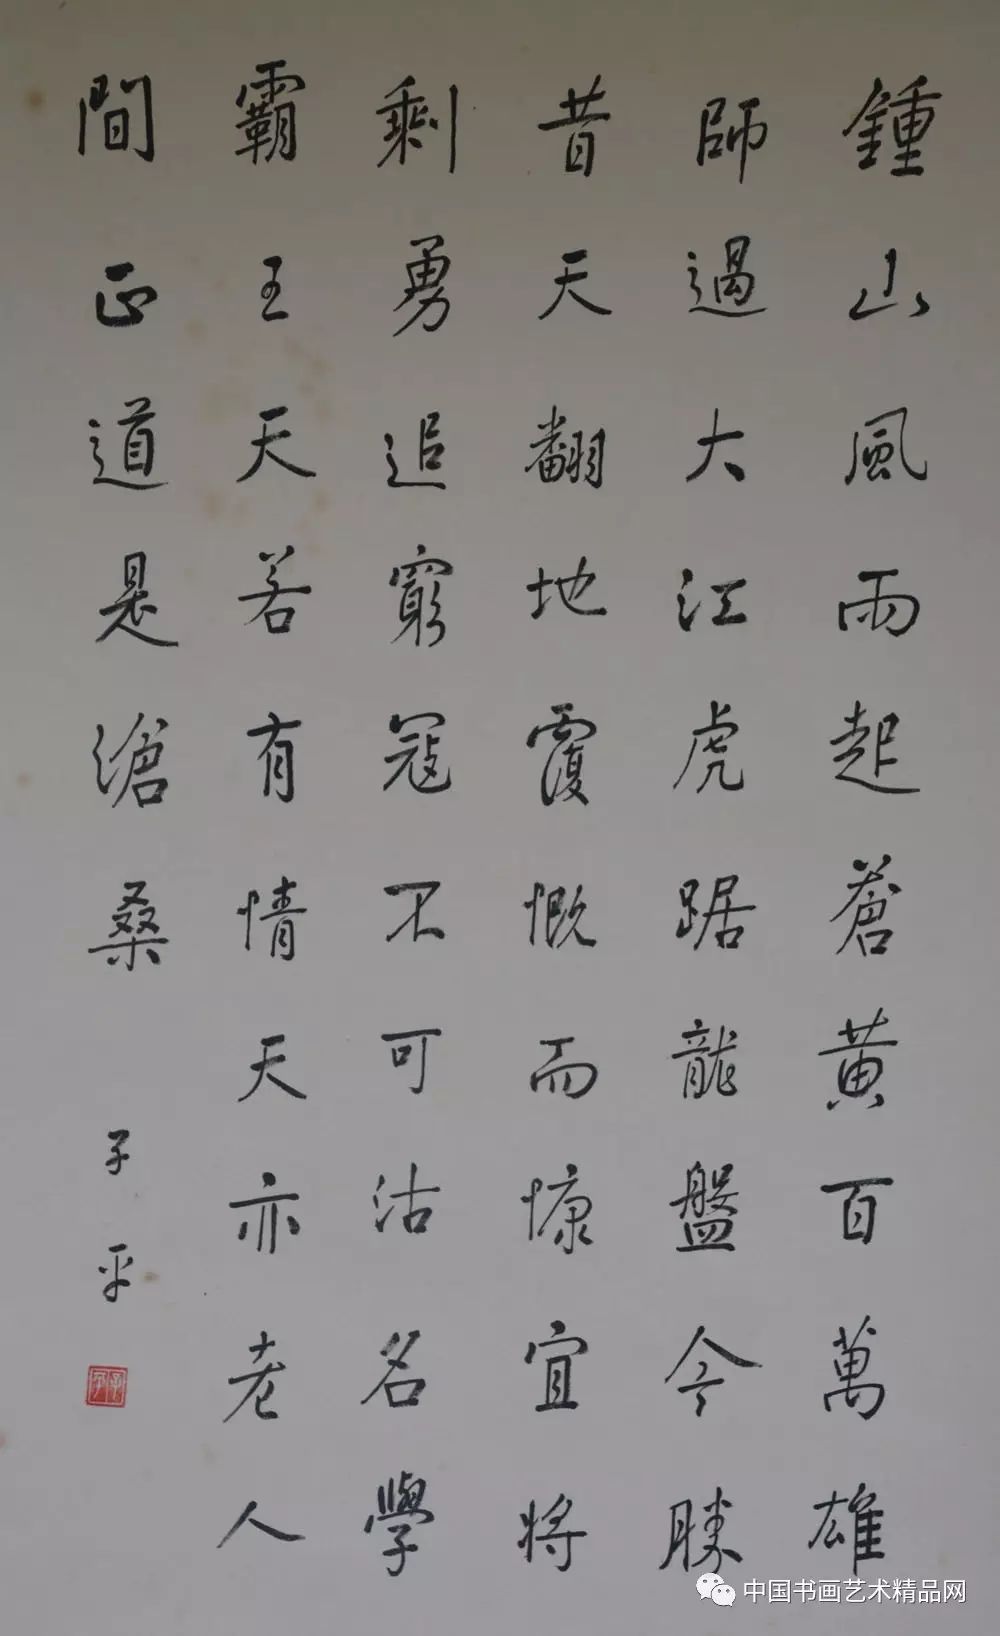 鍾山風雨起蒼黃百萬雄
師過大江虎踞龍盤今勝
昔天翻地覆慨而慷宜將
剩勇追窮寇不可沽名學
霸王天若有情天亦老人
間正道是滄桑
子平
中国书画艺术精品网